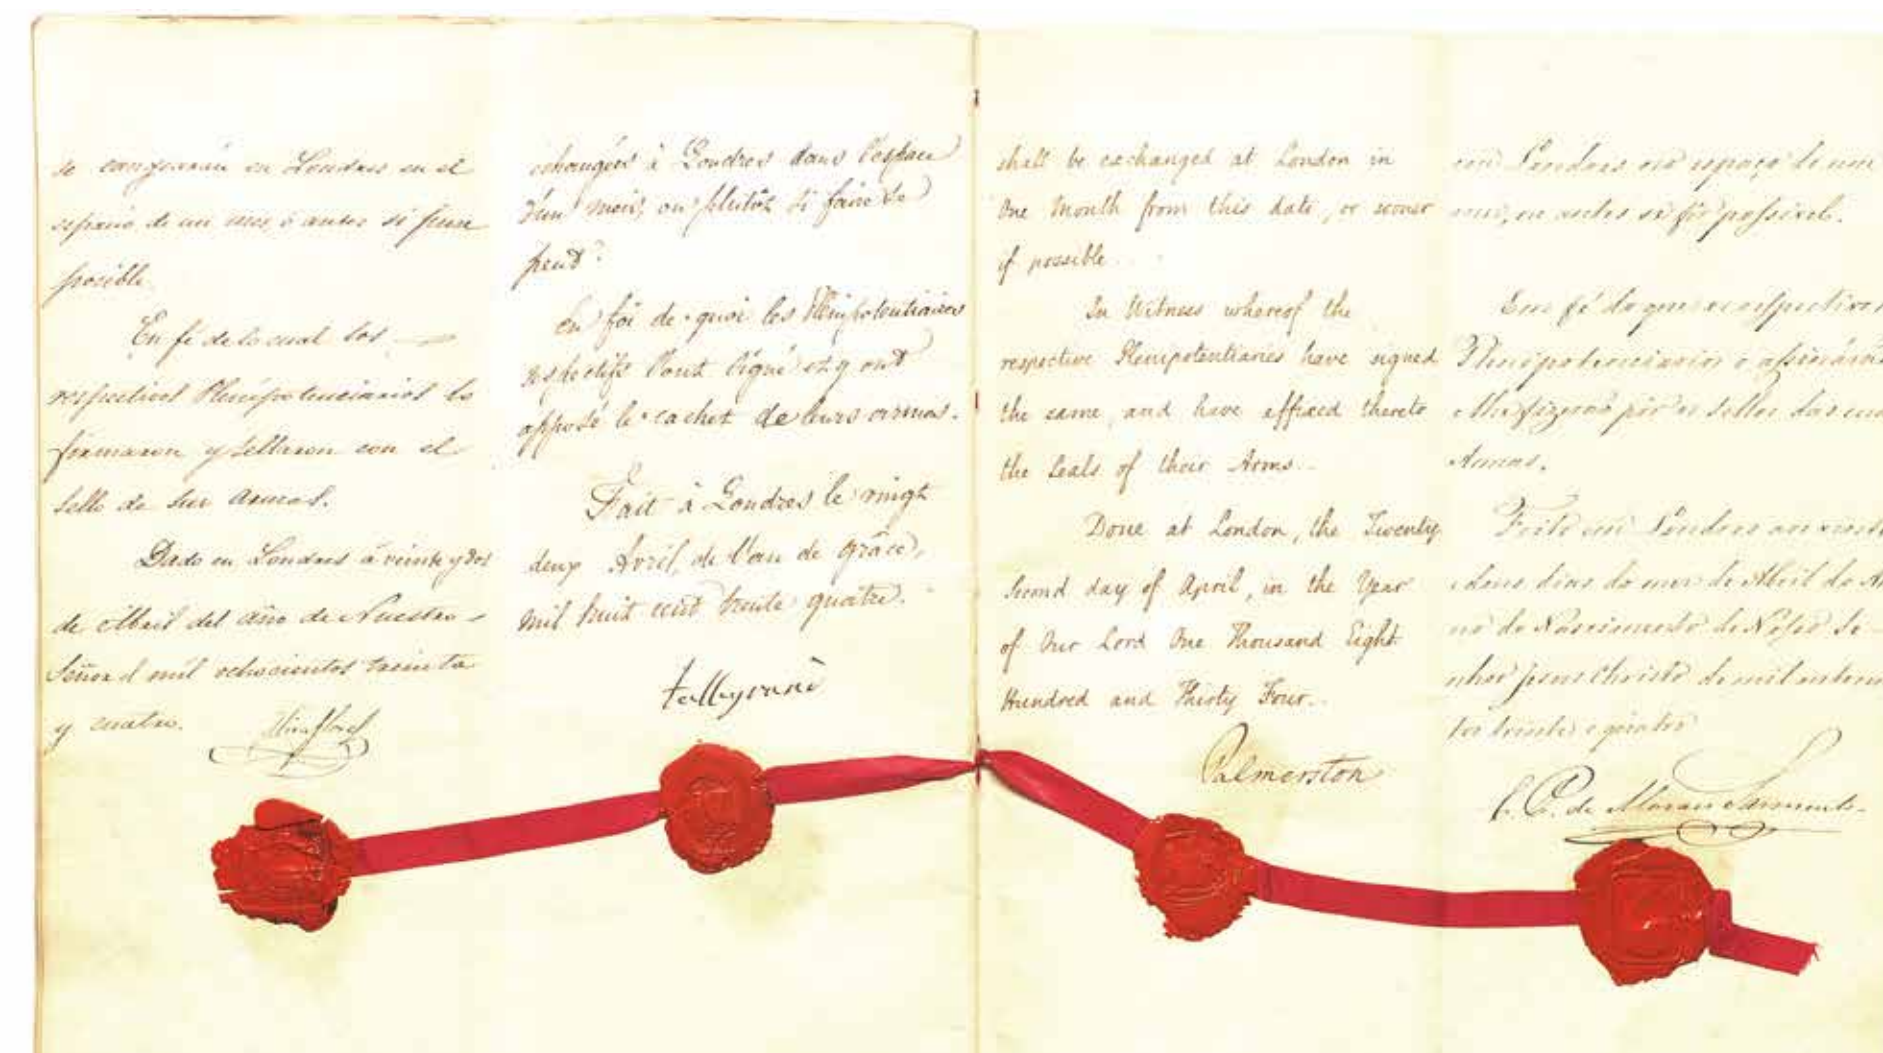 se cangearán en Londres en el
espacio de un mes, ó antes si fuere
posible.
En fé de lo cual los
respectivos Plenipotenciarios lo
firmaron y sellaron con el
sello de sus armas.
Dado en Londres á veinte y dos
de Abril del año de Nuestro
Señor d mil ochocientos treinta
y cuatro.
Miraflores
échangées à Londres dans l'espace
d'un mois, ou plutôt si faire se
peut.
En foi de quoi les Plénipotentiaires
respectifs l'ont signé et y ont
apposé le cachet de leurs armes.
Fait à Londres le vingt
deux Avril, de l'an de grâce,
mil huit cent trente quatre.
Talleyrand
shall be exchanged at London in
One Month from this date, or sooner
if possible.
In Witness whereof the
respective Plenipotentiaries have signed
the same, and have affixed thereto
the Seals of their Arms.
Done at London, the Twenty
Second day of April, in the Year
of Our Lord One Thousand Eight
Hundred and Thirty Four.
Palmerston
em Londres no espaço de um
mez, ou antes se fôr possivel.
Em fé do que os respectivos
Plenipotenciarios o assinárão
e lhe fizerão pôr os sellos das suas
Armas.
Feito em Londres aos vinte
e dous dias do mez de Abril do An
no do Nascimento de Nosso Se-
nhor Jesus Christo de mil oitocen
tos trinta e quatro
C. P. de Moraes Sarmento